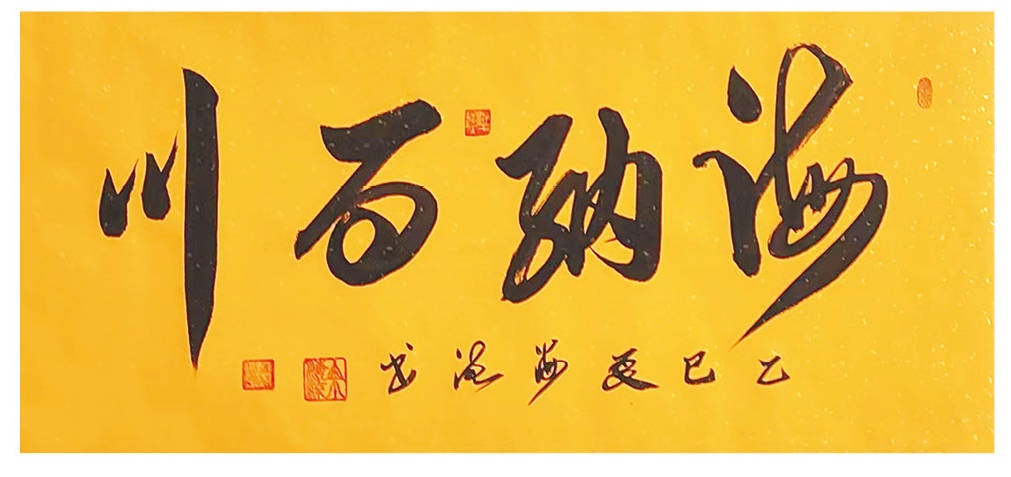 海纳百川
乙巳夏海滝书